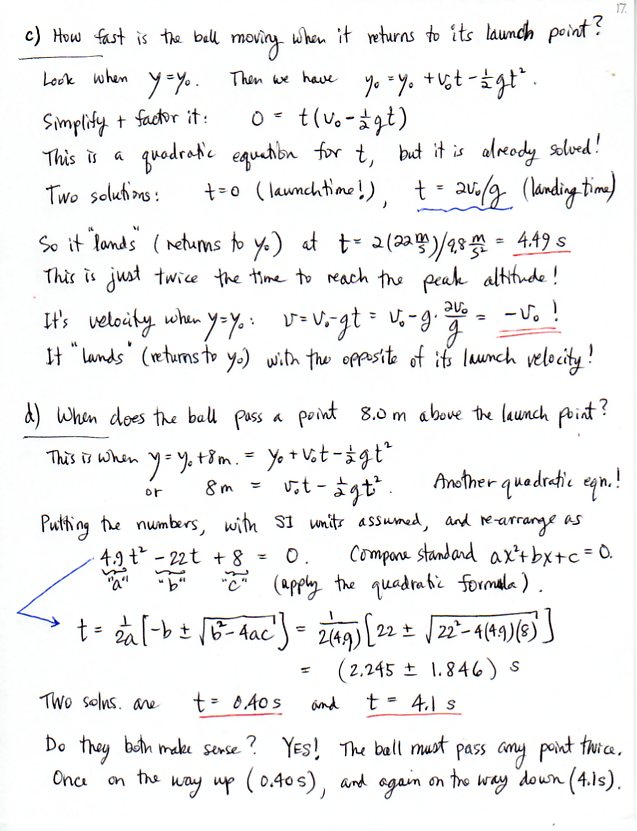 17.
c) How fast is the ball moving when it returns to its launch point?
Look when y=y₀. Then we have y₀ = y₀ + v₀t - ½gt².
Simplify + factor it: 0 = t(v₀ - ½gt)
This is a quadratic equation for t, but it is already solved!
Two solutions: t=0 (launchtime!), t = 2v₀/g (landing time)
So it "lands" (returns to y₀) at t = 2(22 m/s)/9.8 m/s² = 4.49 s
This is just twice the time to reach the peak altitude!
It's velocity when y=y₀: v = v₀-gt = v₀-g·2v₀/g = -v₀!
It "lands" (returns to y₀) with the opposite of its launch velocity!
d) When does the ball pass a point 8.0 m above the launch point?
This is when y = y₀+8m. = y₀ + v₀t - ½gt²
or 8m = v₀t - ½gt². Another quadratic eqn.!
Putting the numbers, with SI units assumed, and re-arrange as
4.9 t² - 22t + 8 = 0. Compare standard ax²+bx+c = 0.
"a" "b" "c" (apply the quadratic formula).
t = 1/2a [-b ± √b²-4ac] = 1/2(4.9) [22 ± √22²-4(4.9)(8)]
= (2.245 ± 1.846) s
Two solns. are t = 0.40 s and t = 4.1 s
Do they both make sense? YES! The ball must pass any point twice.
Once on the way up (0.40s), and again on the way down (4.1s).